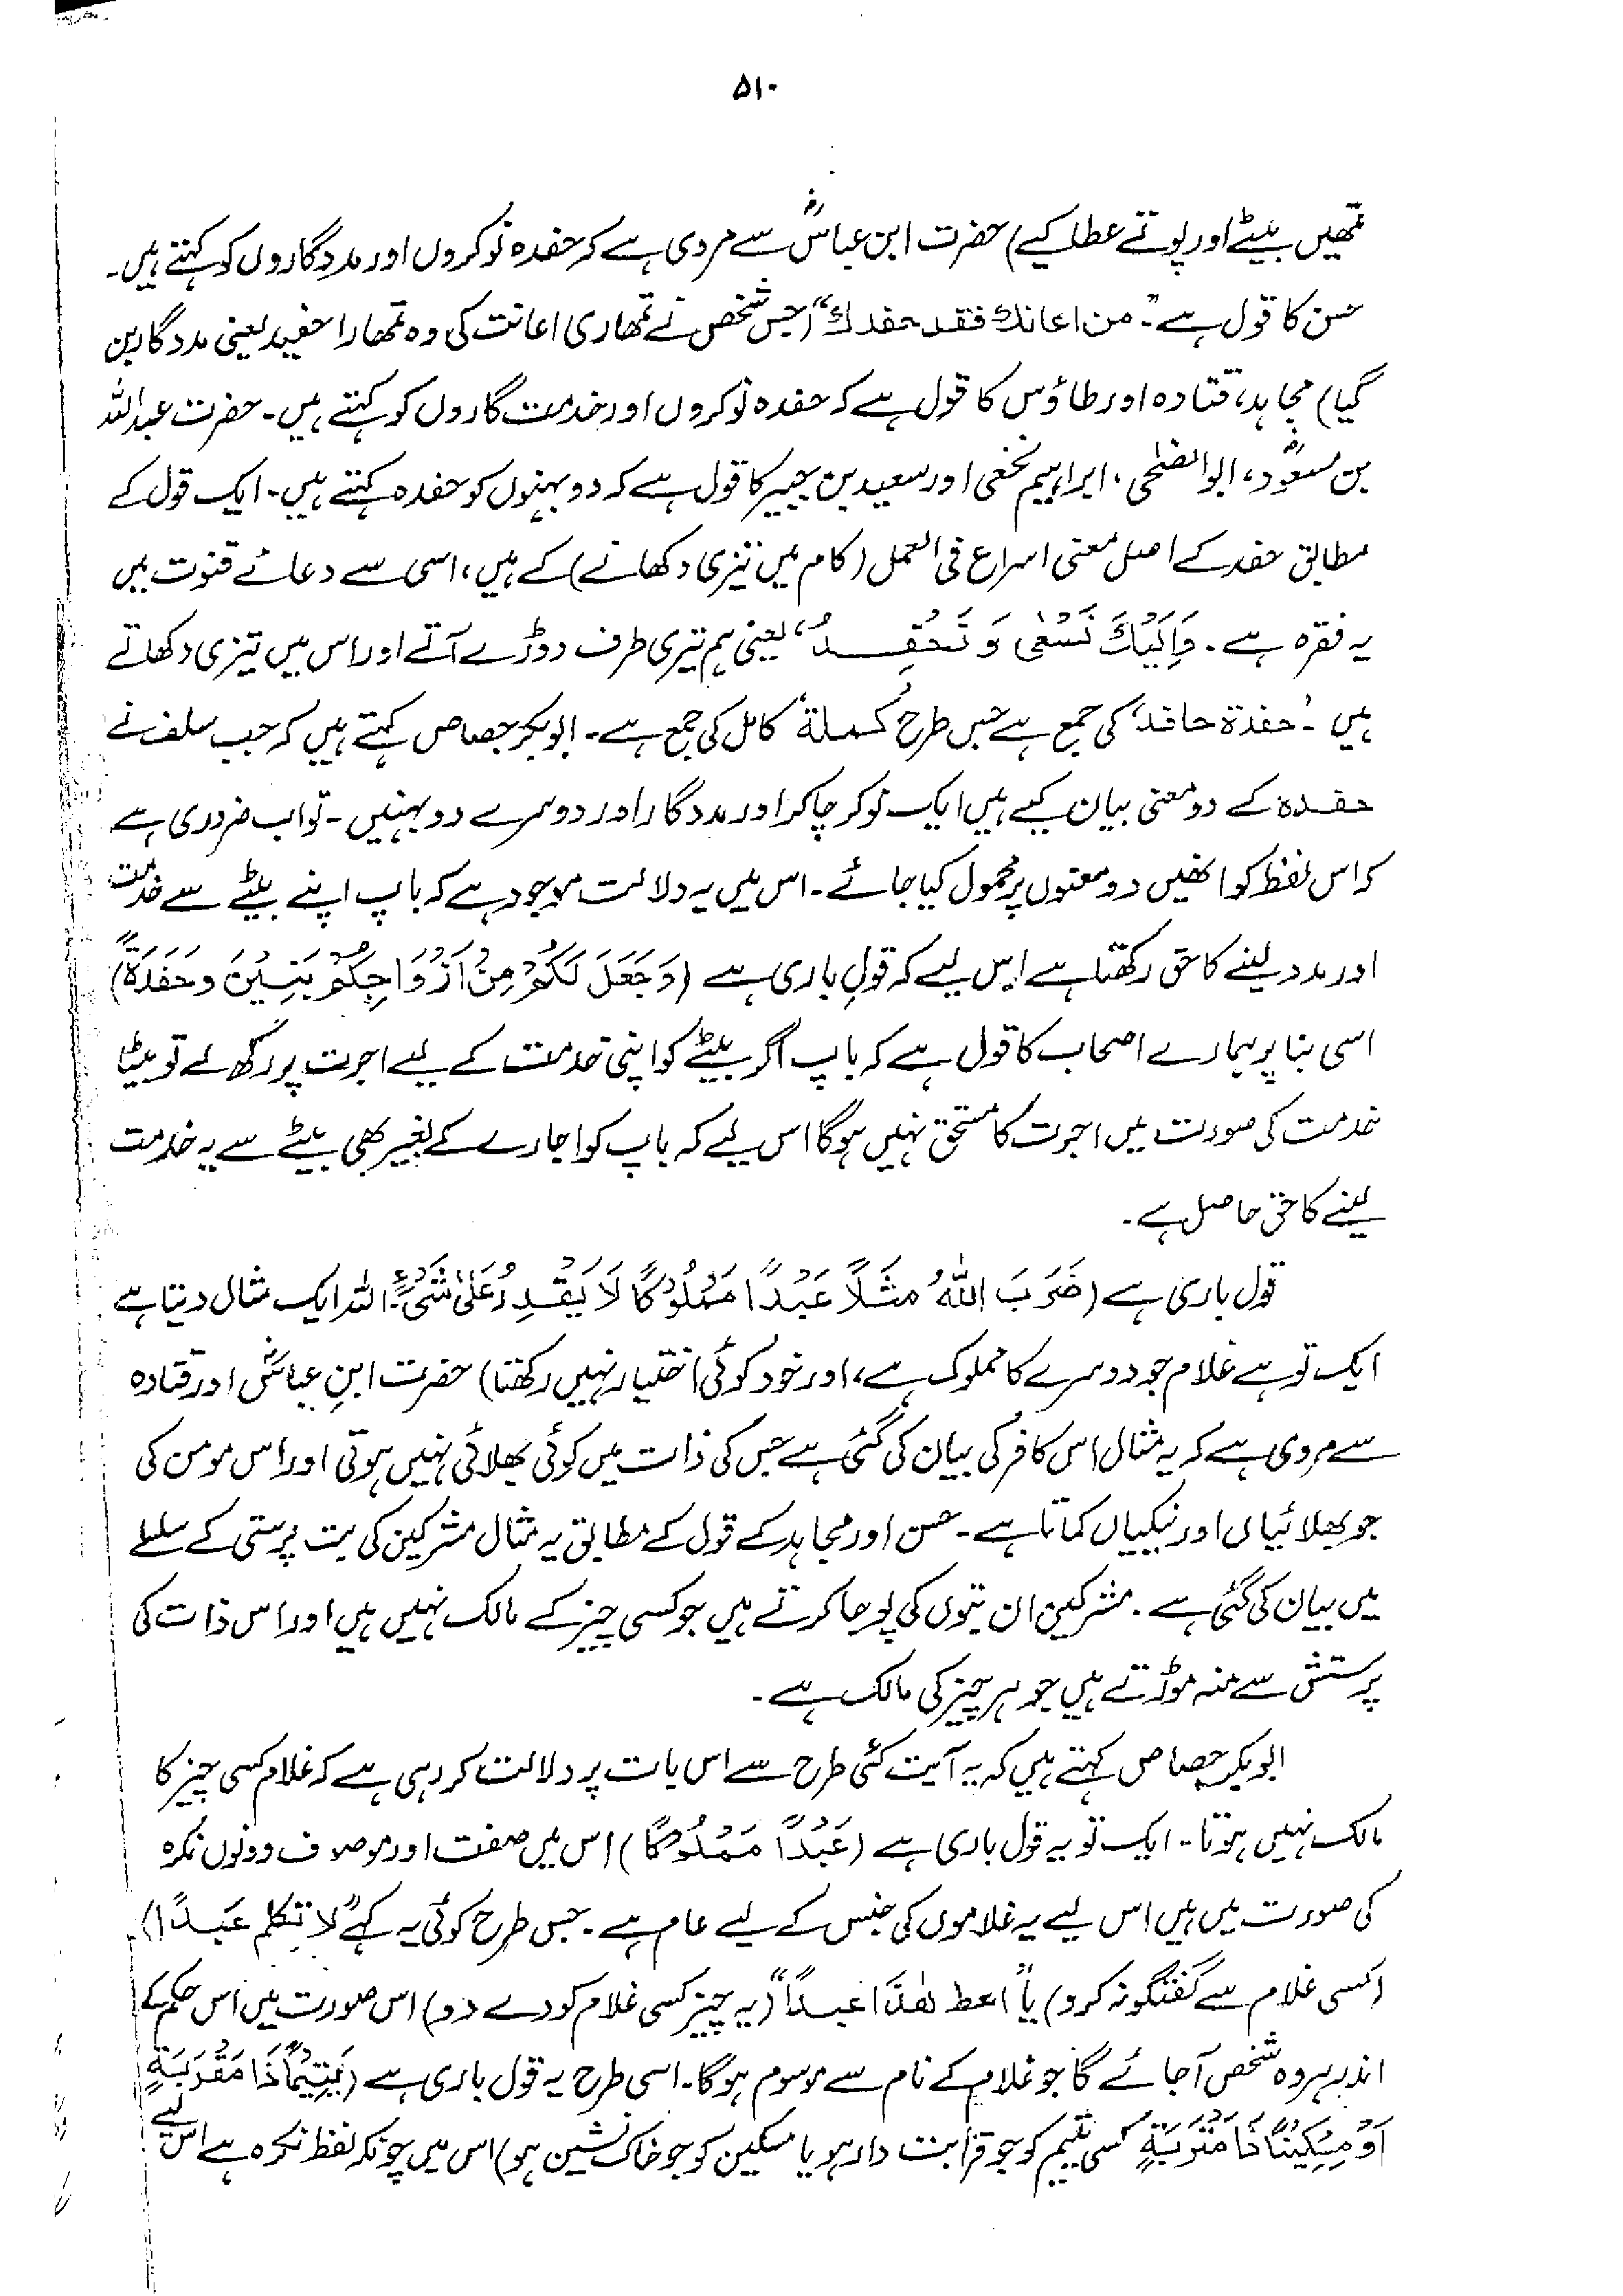 ۵۱۰
تمھیں بیٹے اور پوتے عطا کیے) حضرت ابن عباسؓ سے مروی ہے کہ حفدہ نوکروں اور مددگاروں کو کہتے ہیں۔
حسن کا قول ہے۔ "من اعانك فقد حفدك" (جس شخص نے تمھاری اعانت کی وہ تمھارا حفید یعنی مددگار بن
گیا) مجاہد، قتادہ اور طاؤس کا قول ہے کہ حفدہ نوکروں اور خدمت گاروں کو کہتے ہیں۔ حضرت عبداللہ
بن مسعودؓ، ابوالضحٰی، ابراہیم نخعی اور سعید بن جبیر کا قول ہے کہ دو بہنوں کو حفدہ کہتے ہیں۔ ایک قول کے
مطابق حفد کے اصل معنی اسراع فی العمل (کام میں تیزی دکھانے) کے ہیں، اسی سے دعائے قنوت میں
یہ فقرہ ہے۔ وَاِلَيْكَ نَسْعٰى وَ نَحْفِدُ، یعنی ہم تیری طرف دوڑے آتے اور اس میں تیزی دکھاتے
ہیں۔ 'حفدۃ حافد' کی جمع ہے جس طرح کملۃ' کامل کی جمع ہے۔ ابوبکر جصاص کہتے ہیں کہ جب سلف نے
حفدہ کے دو معنی بیان کیے ہیں ایک نوکر چاکر اور مددگار اور دوسرے دو بہنیں۔ تو اب ضروری ہے
کہ اس لفظ کو انھیں دو معنوں پر محمول کیا جائے۔ اس میں یہ دلالت موجود ہے کہ باپ اپنے بیٹے سے خدمت
اور مدد لینے کا حق رکھتا ہے اس لیے کہ قولِ باری ہے (وَجَعَلَ لَكُمْ مِنْ اَزْوَاجِكُمْ بَنِيْنَ وحَفَدَةً)
اسی بنا پر ہمارے اصحاب کا قول ہے کہ باپ اگر بیٹے کو اپنی خدمت کے لیے اجرت پر رکھ لے تو بیٹا
خدمت کی صورت میں اجرت کا مستحق نہیں ہوگا اس لیے کہ باپ کو اجارے کے بغیر بھی بیٹے سے یہ خدمت
لینے کا حق حاصل ہے۔
قول باری ہے (ضَرَبَ اللّٰهُ مَثَلًا عَبْدًا مَمْلُوْكًا لَا يَقْدِرُ عَلٰى شَيْءٍ۔ اللہ ایک مثال دیتا ہے
ایک تو ہے غلام جو دوسرے کا مملوک ہے، اور خود کوئی اختیار نہیں رکھتا) حضرت ابنِ عباسؓ اور قتادہ
سے مروی ہے کہ یہ مثال اس کافر کی بیان کی گئی ہے جس کی ذات میں کوئی بھلائی نہیں ہوتی اور اس مومن کی
جو بھلائیاں اور نیکیاں کماتا ہے۔ حسن اور مجاہد کے قول کے مطابق یہ مثال مشرکین کی بت پرستی کے سلسلے
میں بیان کی گئی ہے۔ مشرکین ان بتوں کی پوجا کرتے ہیں جو کسی چیز کے مالک نہیں ہیں اور اس ذات کی
پرستش سے منہ موڑتے ہیں جو ہر چیز کی مالک ہے۔
ابوبکر جصاص کہتے ہیں کہ یہ آیت کئی طرح سے اس بات پر دلالت کر رہی ہے کہ غلام کسی چیز کا
مالک نہیں ہوتا۔ ایک تو یہ قول باری ہے (عَبْدًا مَمْلُوْكًا) اس میں صفت اور موصوف دونوں نکرہ
کی صورت میں ہیں اس لیے یہ غلاموں کی جنس کے لیے عام ہے۔ جس طرح کوئی یہ کہے "لا تكلم عَبدًا)
(کسی غلام سے گفتگو نہ کرو) یا "اعط هٰذَا عبدًا" (یہ چیز کسی غلام کو دے دو) اس صورت میں اس حکم کے
اندر ہر وہ شخص آجائے گا جو غلام کے نام سے موسوم ہوگا۔ اسی طرح یہ قول باری ہے (يَتِيْمًا ذَا مَقْرَبَةٍ
اَوْ مِسْكِيْنًا ذَا مَتْرَبَةٍ کسی یتیم کو جو قرابت دار ہو یا مسکین کو جو خاک نشین ہو) اس میں چونکہ لفظ نکرہ ہے اس لیے